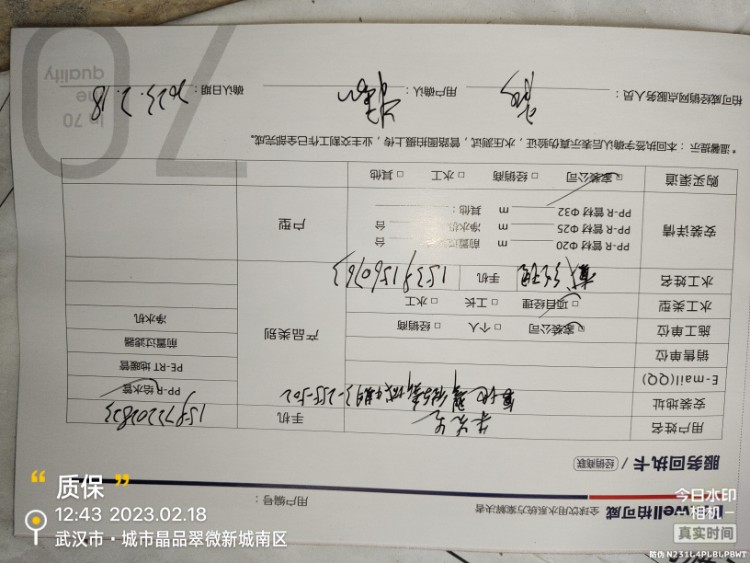 well柏可威 全球饮用水系统方案解决者 用户编号：
服务回执卡 / 经销商联
用户姓名 朱先生 手机 15972202823
安装地址
E-mail(QQ)
销售单位
施工单位 □ 家装公司 □ 个人 □ 经销商
水工类型 □ 项目经理 □ 工长 □ 水工
水工姓名 手机 15391560763
产品类别
PP-R 给水管
PE-RT 地暖管
前置过滤器
净水机
安装详情
PP-R 管材 Φ20 m 前置过 台
PP-R 管材 Φ25 m 净水机 台
PP-R 管材 Φ32 m 其他：
户型
购买渠道 □ 家装公司 □ 经销商 □ 水工 □ 其他
*温馨提示：本回执签字确认后表示真伪验证，水压测试，管路图拍摄上传，业主交割工作已全部完成。
柏可威经销网点服务人员： 用户确认： 确认日期： 2023.2.18
In 70
me
quality
70
质保
12:43 2023.02.18
武汉市·城市晶品翠微新城南区
今日水印
相机
真实时间
防伪 N231L4PLBLPBWT